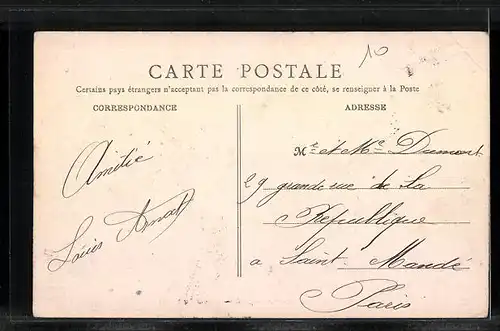 10
CARTE POSTALE
Certains pays étrangers n'acceptant pas la correspondance de ce côté, se renseigner à la Poste
CORRESPONDANCE
ADRESSE
Amitié
Louis
Mr et Me Dumont
29 grande rue de La
République
a Saint Mandé
Paris